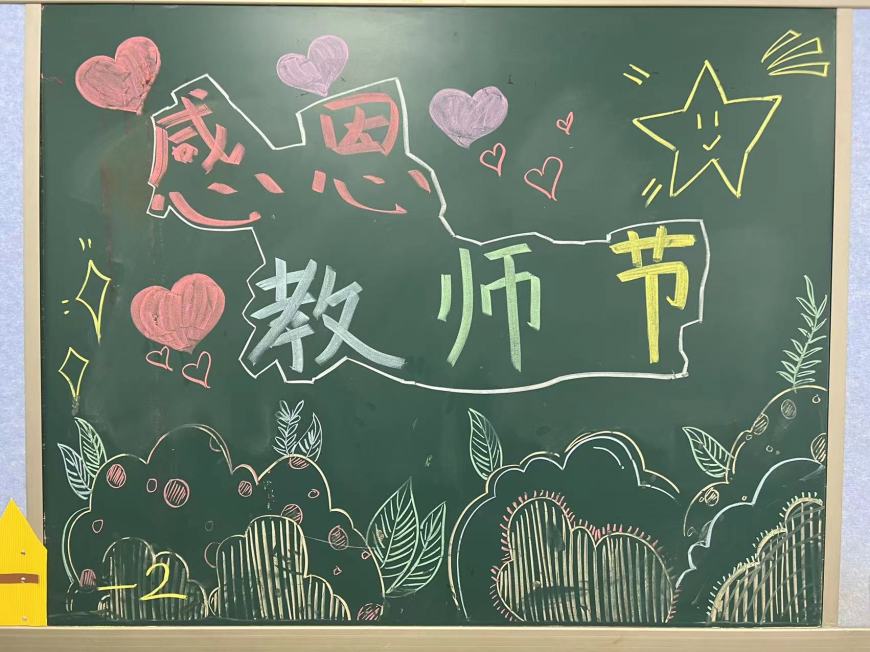 感恩
教师节
-2